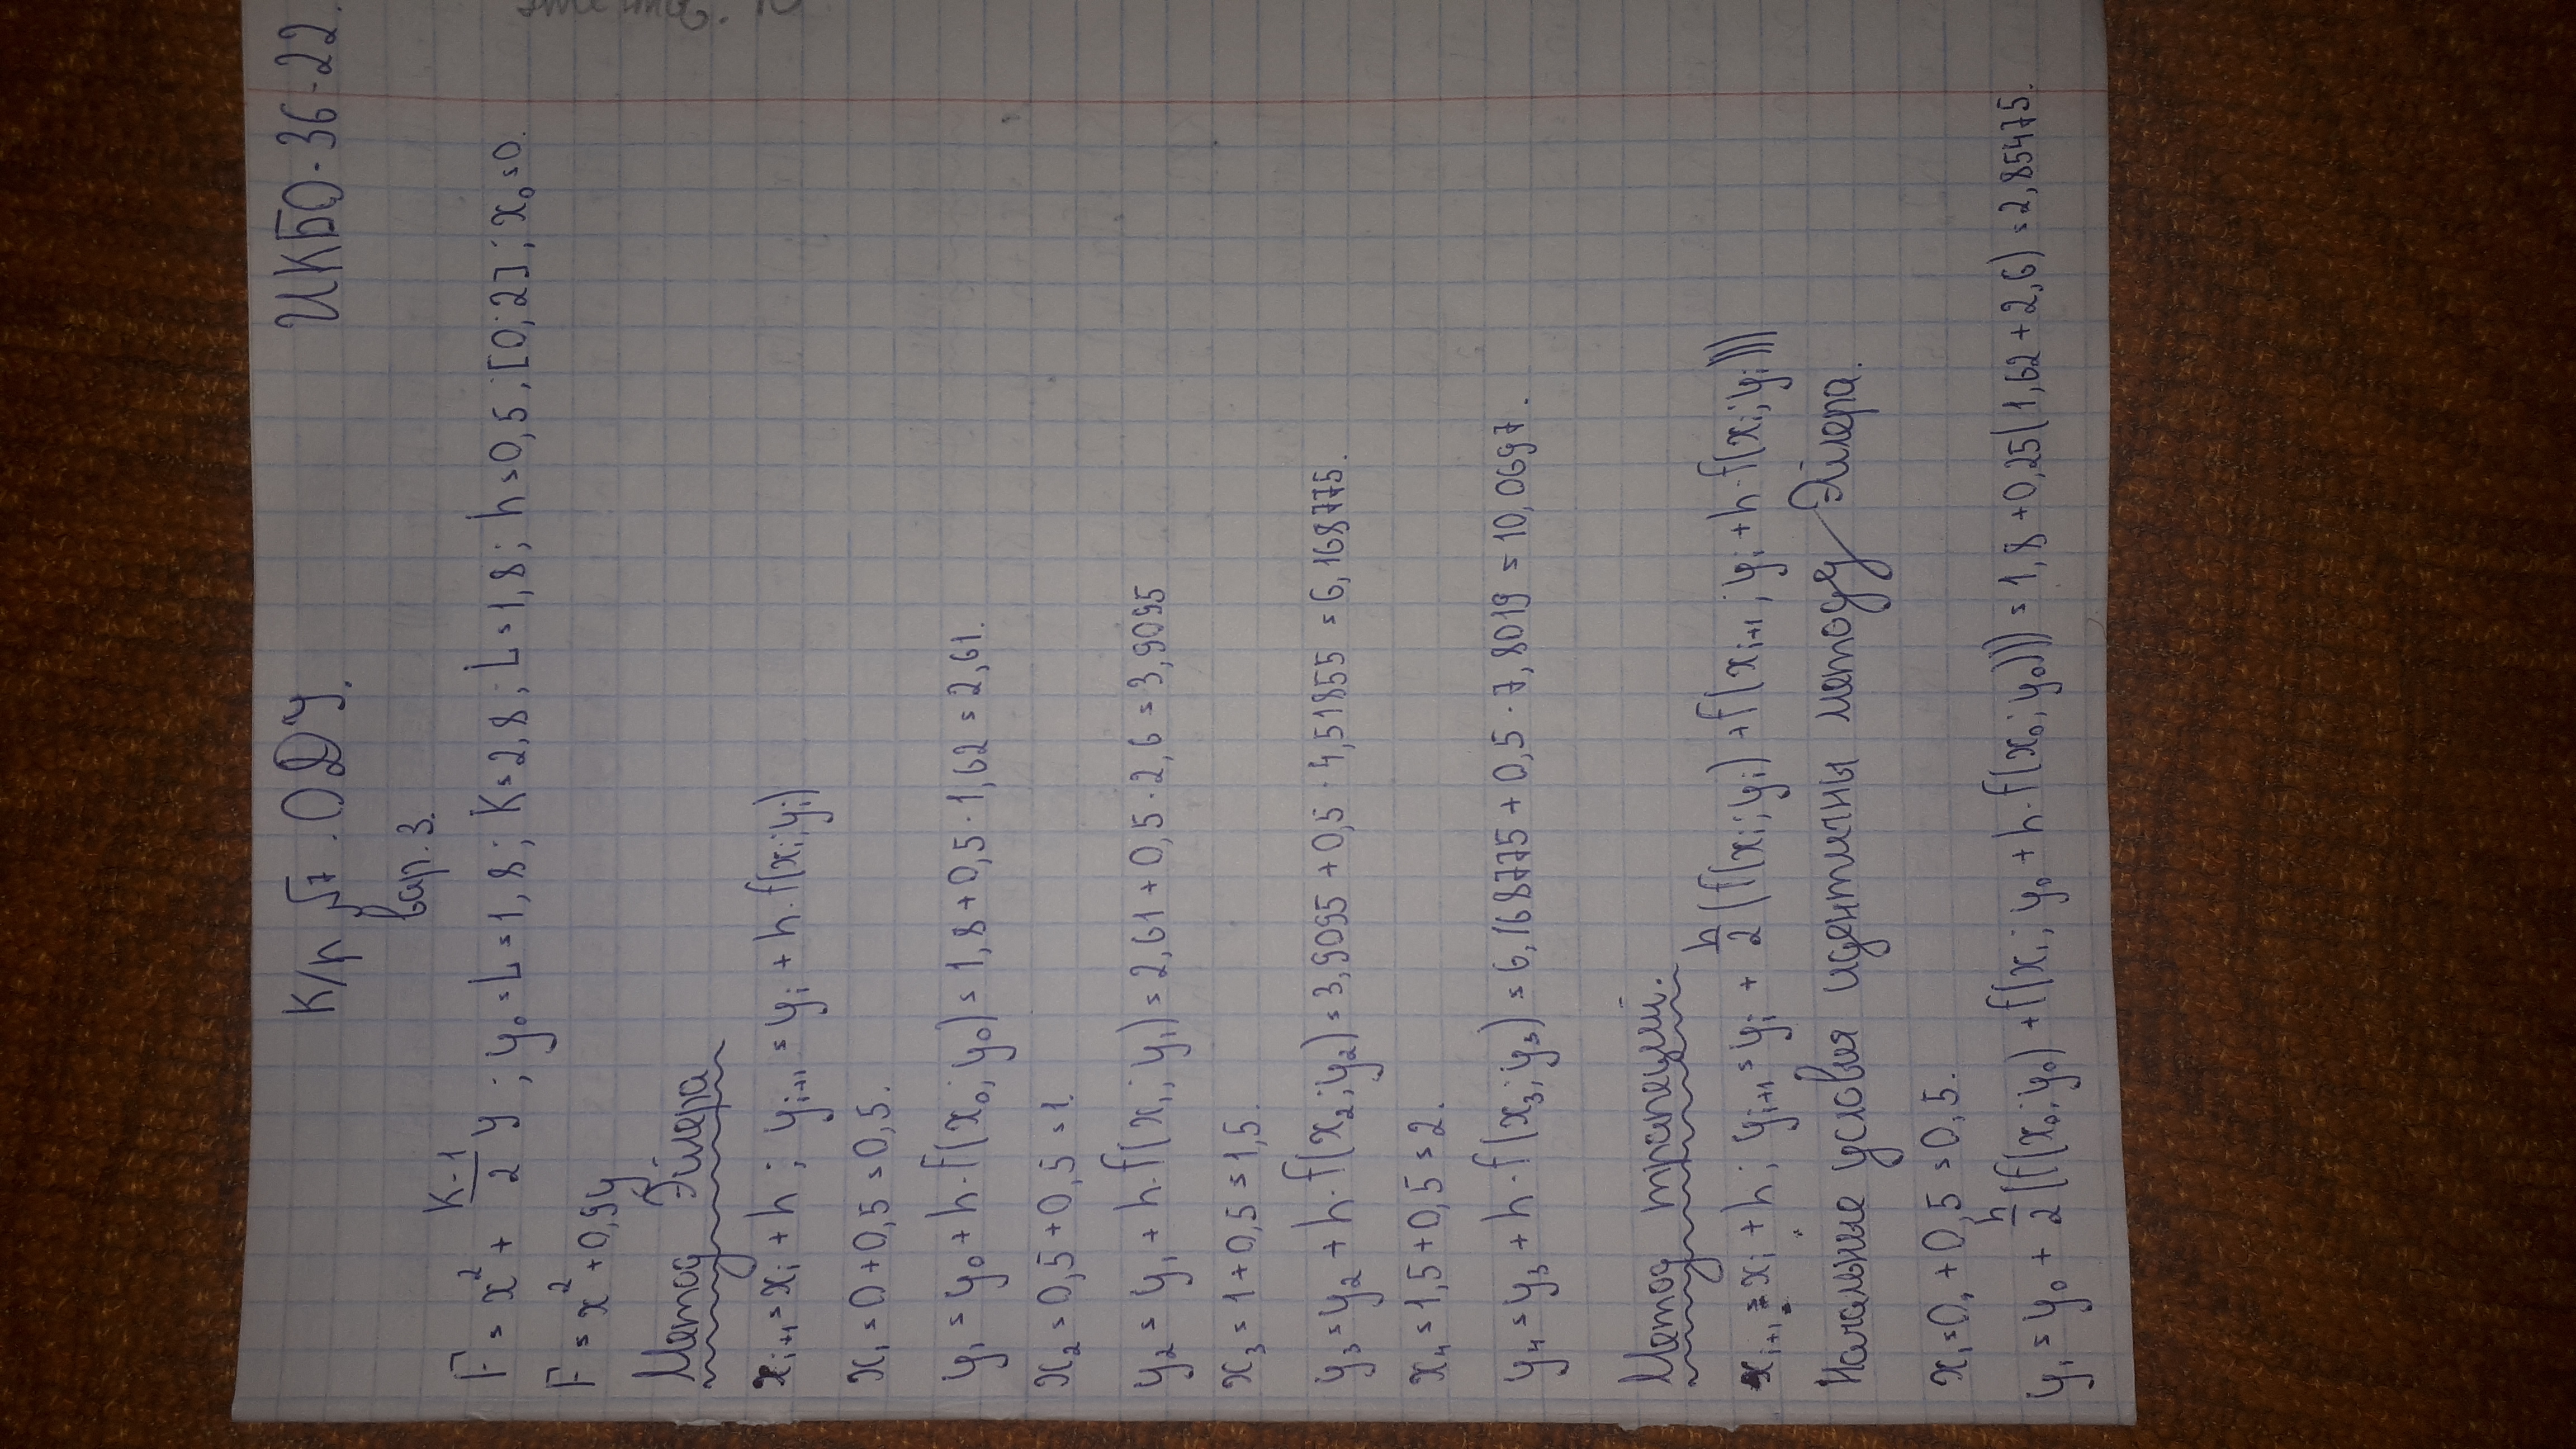 К/р №7. ОДУ. ИКБО-36-22.
вар. 3.
F = x² + (K-1)/2 y ; y₀ = L = 1,8 ; K = 2,8 ; L = 1,8 ; h = 0,5 ; [0; 2] ; x₀ = 0.
F = x² + 0,9y
Метод Эйлера
xᵢ₊₁ = xᵢ + h ; yᵢ₊₁ = yᵢ + h · f(xᵢ; yᵢ)
x₁ = 0 + 0,5 = 0,5.
y₁ = y₀ + h · f(x₀; y₀) = 1,8 + 0,5 · 1,62 = 2,61.
x₂ = 0,5 + 0,5 = 1.
y₂ = y₁ + h · f(x₁; y₁) = 2,61 + 0,5 · 2,6 = 3,9095
x₃ = 1 + 0,5 = 1,5.
y₃ = y₂ + h · f(x₂; y₂) = 3,9095 + 0,5 · 4,51855 = 6,168775.
x₄ = 1,5 + 0,5 = 2.
y₄ = y₃ + h · f(x₃; y₃) = 6,168775 + 0,5 · 7,8019 = 10,0697.
Метод трапеций.
xᵢ₊₁ = xᵢ + h ; yᵢ₊₁ = yᵢ + h/2 (f(xᵢ; yᵢ) + f(xᵢ₊₁ ; yᵢ + h · f(xᵢ; yᵢ)))
Начальные условия идентичны методу Эйлера.
x₁ = 0, + 0,5 = 0,5.
y₁ = y₀ + h/2 (f(x₀; y₀) + f(x₁ ; y₀ + h · f(x₀; y₀))) = 1,8 + 0,25(1,62 + 2,6) = 2,85475.